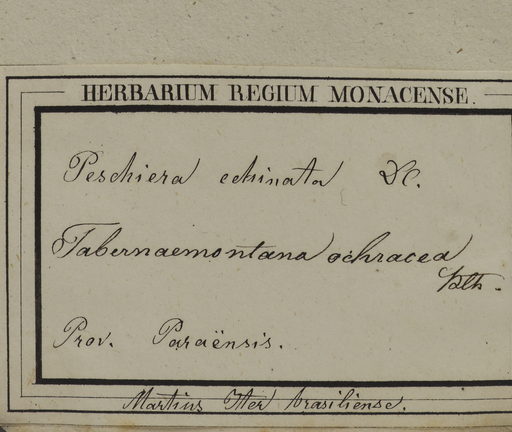 HERBARIUM REGIUM MONACENSE.
Peschiera echinata DC.
Tabernaemontana ochracea
Bth.
Prov. Paraënsis.
Martius Iter brasiliense.